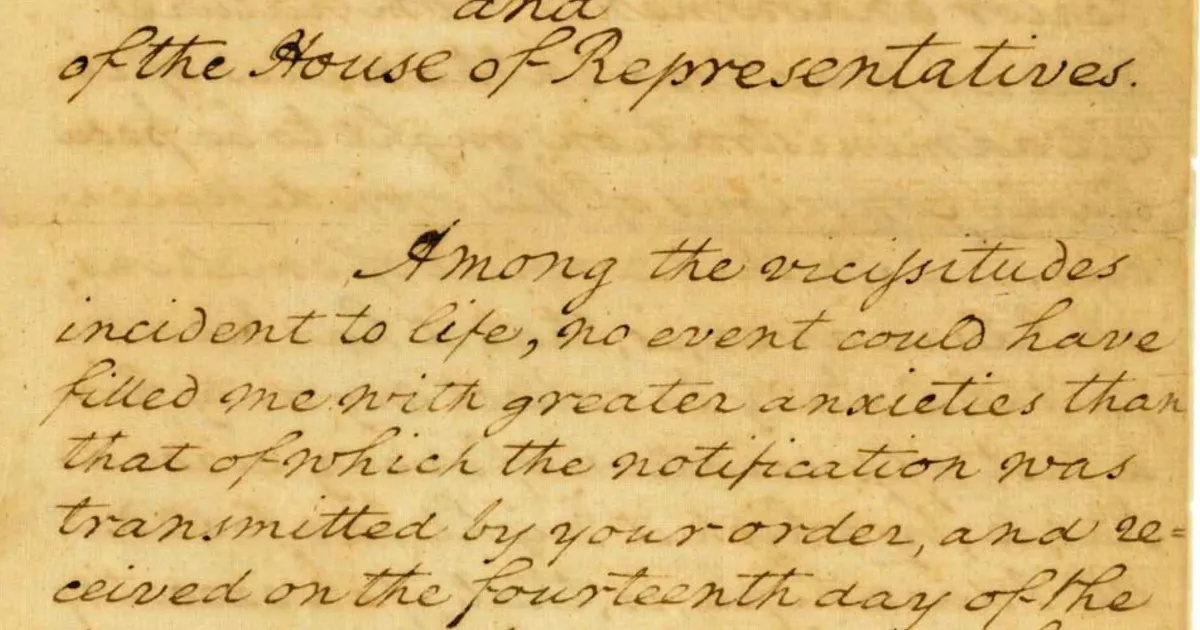 and
of the House of Representatives.
Among the vicissitudes
incident to life, no event could have
filled me with greater anxieties than
that of which the notification was
transmitted by your order, and re=
ceived on the fourteenth day of the